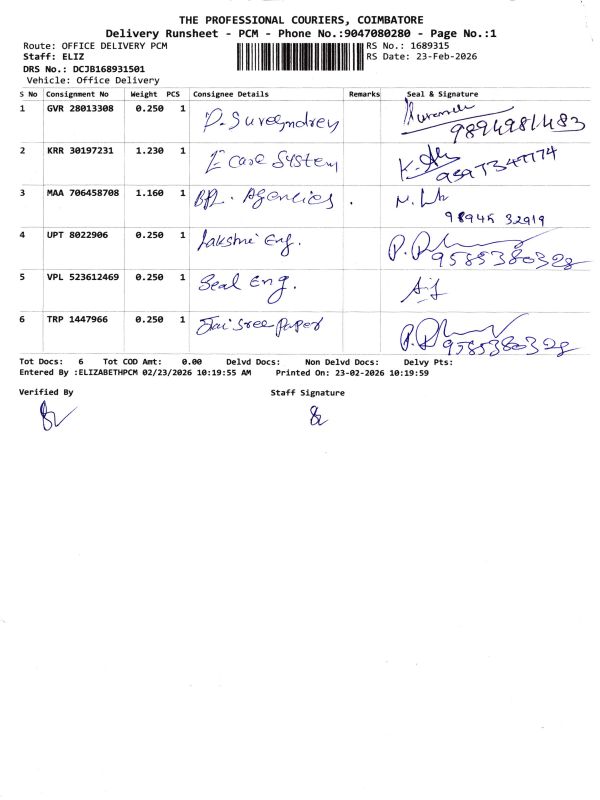 THE PROFESSIONAL COURIERS, COIMBATORE
Delivery Runsheet - PCM - Phone No.:9047080280 - Page No.:1
Route: OFFICE DELIVERY PCM RS No.: 1689315
Staff: ELIZ RS Date: 23-Feb-2026
DRS No.: DCJB168931501
Vehicle: Office Delivery
S No Consignment No Weight PCS Consignee Details Remarks Seal & Signature
1 GVR 28013308 0.250 1 P. Surendrey
9894981483
2 KRR 30197231 1.230 1 I Care System
3 MAA 706458708 1.160 1 BPL. Agencies .
98945 32919
4 UPT 8022906 0.250 1 Lakshmi Eng.
9585380328
5 VPL 523612469 0.250 1 Seal Eng.
6 TRP 1447966 0.250 1 Jai Sree Paper
9585380328
Tot Docs: 6 Tot COD Amt: 0.00 Delvd Docs: Non Delvd Docs: Delvy Pts:
Entered By :ELIZABETHPCM 02/23/2026 10:19:55 AM Printed On: 23-02-2026 10:19:59
Verified By Staff Signature